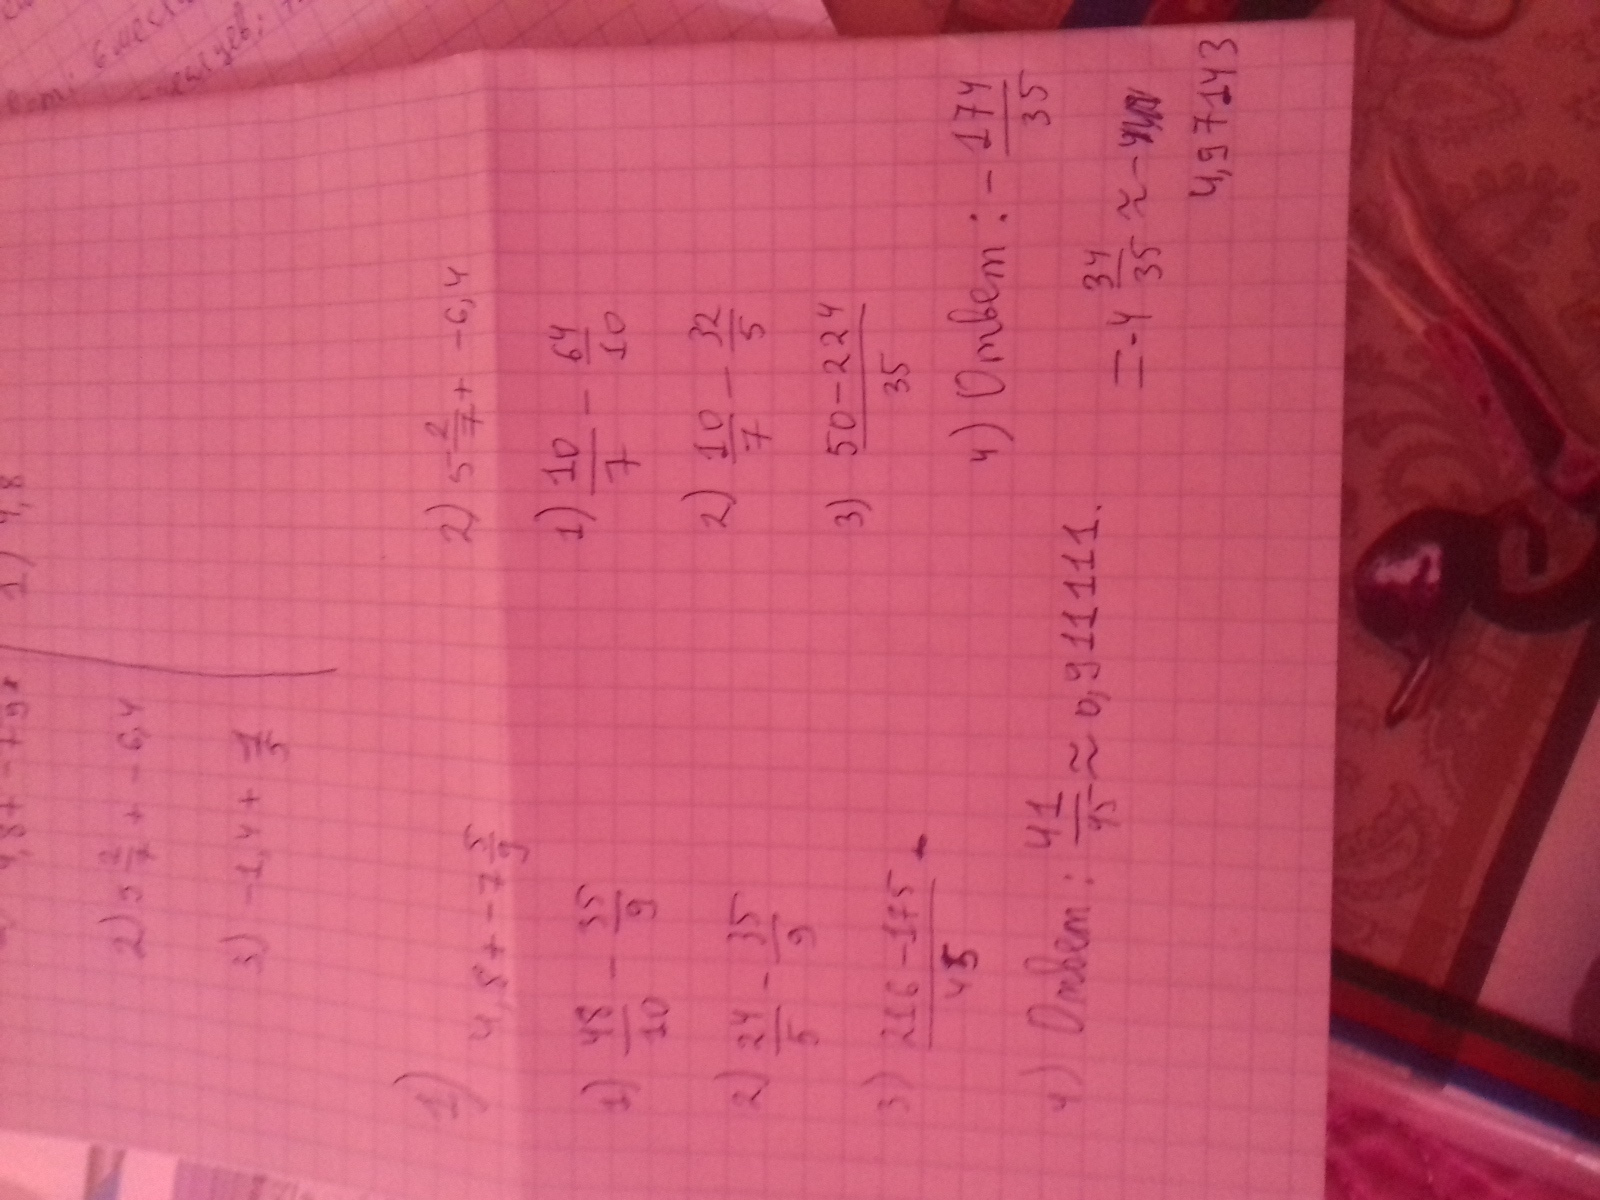 4,8 + -7
1) 4,8
2) 5 2/7 + -6,4
3) -1,4 +
1) 4,8 + -7 5/9
1) 48/10 - 35/9
2) 24/5 - 35/9
3) 216-175/45
4) Ответ: 41/45 ≈ 0,911111.
2) 5 2/7 + -6,4
1) 10/7 - 64/10
2) 10/7 - 32/5
3) 50-224/35
4) Ответ: - 174/35
= -4 34/35 ≈ -
4,97143